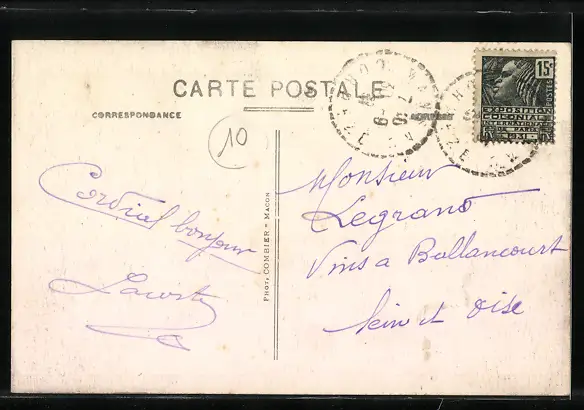 CARTE POSTALE
CORRESPONDANCE
10
Cordial bonjour
Lacoste
PHOT. COMBIER - MACON
15c
POSTES
EXPOSITION
COLONIALE
INTERNATIONALE
PARIS
1931
Monsieur
Legrand
Vins a Ballancourt
Sein et Oise